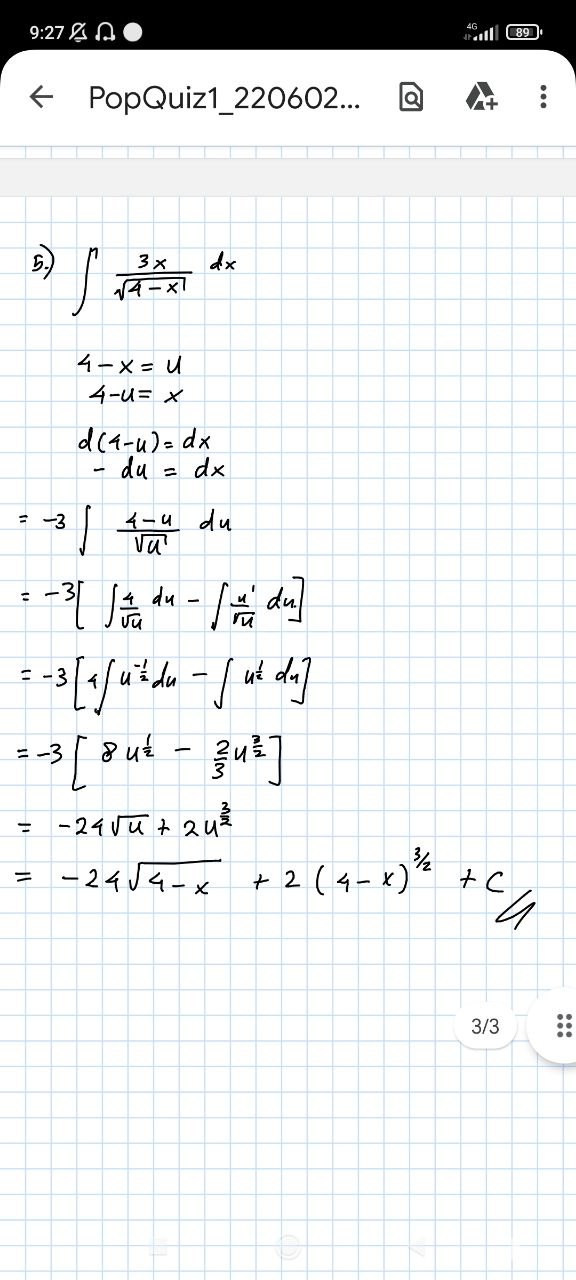 9:27 4G 89
PopQuiz1_220602...
5.) ∫ 3x/√(4-x) dx
4-x = u
4-u = x
d(4-u) = dx
- du = dx
= -3 ∫ (4-u)/√u du
= -3[ ∫ 4/√u du - ∫ u¹/√u du ]
= -3[ 4∫ u^(-1/2) du - ∫ u^(1/2) du ]
= -3[ 8u^(1/2) - 2/3 u^(3/2) ]
= -24√u + 2u^(3/2)
= -24√(4-x) + 2(4-x)^(3/2) + C
3/3